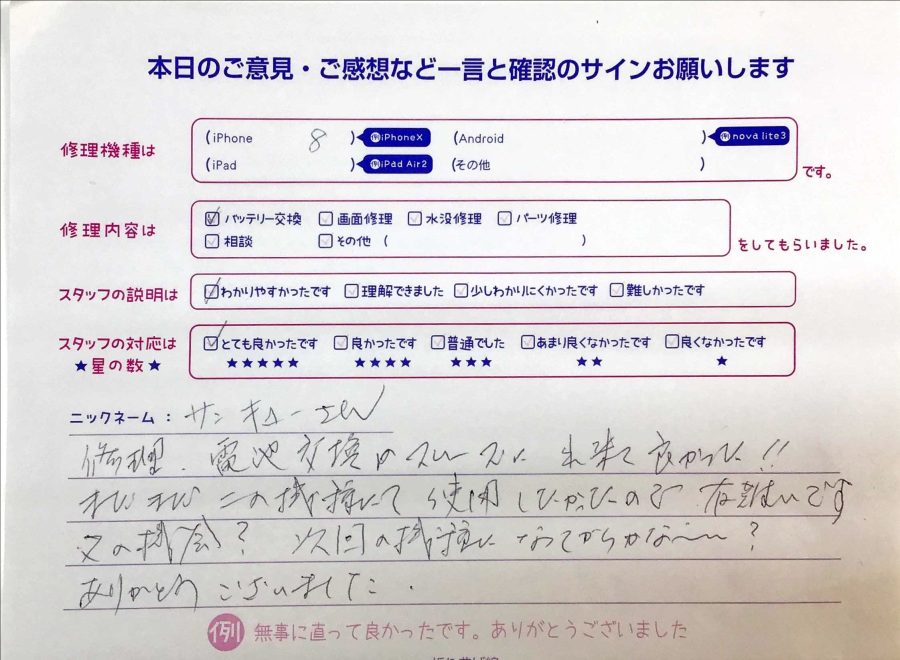 本日のご意見・ご感想など一言と確認のサインお願いします
修理機種は (iPhone 8 ) 例iPhoneX (Android ) 例nova lite3
(iPad ) 例iPad Air2 (その他 ) です。
修理内容は バッテリー交換 画面修理 水没修理 パーツ修理
相談 その他 ( ) をしてもらいました。
スタッフの説明は わかりやすかったです 理解できました 少しわかりにくかったです 難しかったです
スタッフの対応は とても良かったです 良かったです 普通でした あまり良くなかったです 良くなかったです
★星の数★ ★★★★★ ★★★★ ★★★ ★★ ★
ニックネーム : サンキュー
修理、電池交換がスムーズに出来て良かった!!
まだまだこの機種にて使用したかったので有難いです
又の機会? 次回の機種になってからかな〜?
ありがとうございました.
例 無事に直って良かったです。ありがとうございました